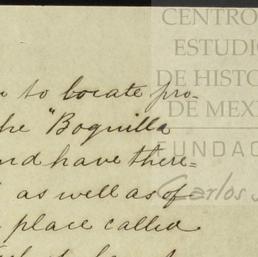 to locate pro-
he "Boquilla
nd have there=
as well as of
place called
CENTRO
ESTUDIO
DE HISTO
DE MEXI
FUNDAC
Carlos S